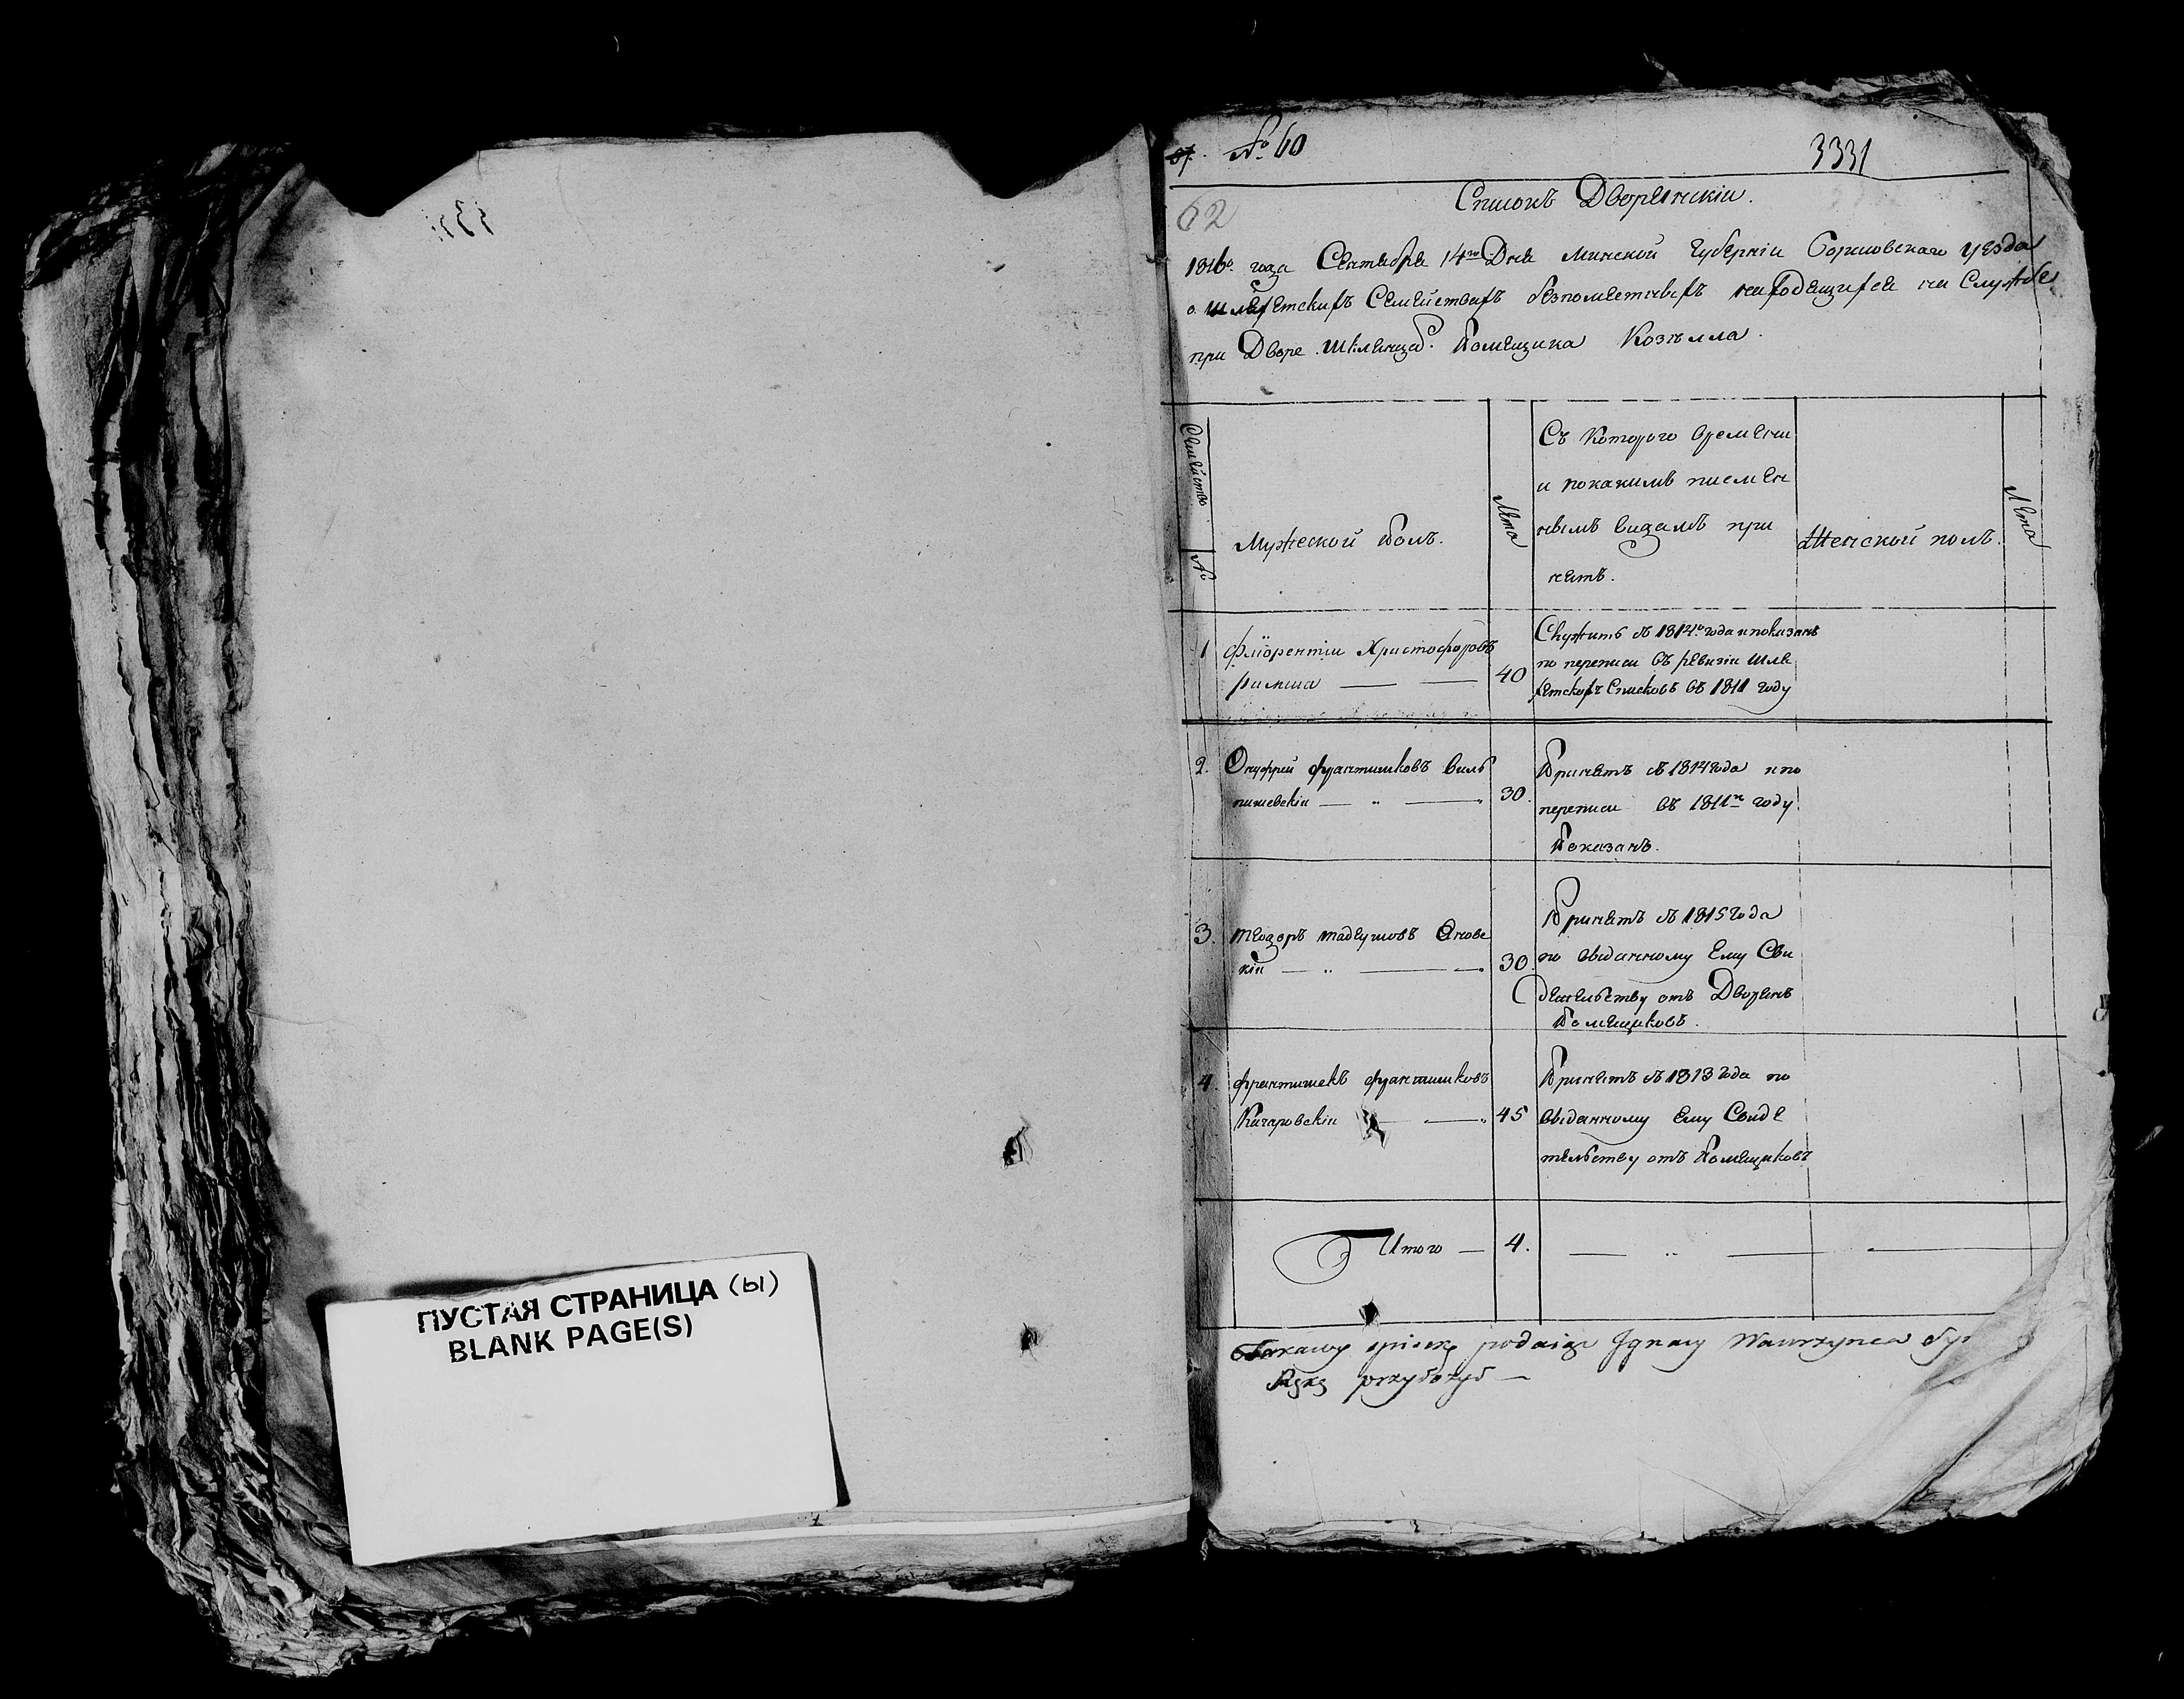 ПУСТАЯ СТРАНИЦА (ы)
BLANK PAGE(S)
№ 60
3331
62
Списокъ Дворянскіи.
1816го года Сентября 14го Дня Минской Губерніи Борисовскаго уезда
о Шляхетскихъ Семействахъ безпоместныхъ находящихся на Службе
при Дворе Помещика Козелла
Семейство
№
Мужеской Полъ.
Лета
Съ Которого времени
и покакимъ писмен
нымъ видамъ при
нятъ.
Женской полъ.
Лета
1
Флiорентіи Христофоровъ
римша
40
Служитъ съ 1814го года и показанъ
по переписи въ ревизіи шля
хетскихъ Списковъ въ 1811 году
2.
Онуфрей франтишковъ Виль
пишевскіи
30.
Принятъ съ 1814 года и по
переписи въ 1811м году
Показанъ.
3.
теодоръ тадеушовъ Янове
кіи
30.
Принятъ съ 1815 года
по выданному Ему Сви
детельству отъ Дворянъ
Помещиковъ.
4.
франтишекъ франтишковъ
Кичаровскіи
45
Принятъ съ 1813 года по
выданному Ему Свиде
тельству отъ Помещиковъ
Итого
4.
spisek podaiąc Ignacy Wawrzynca
Rękę przyłożył